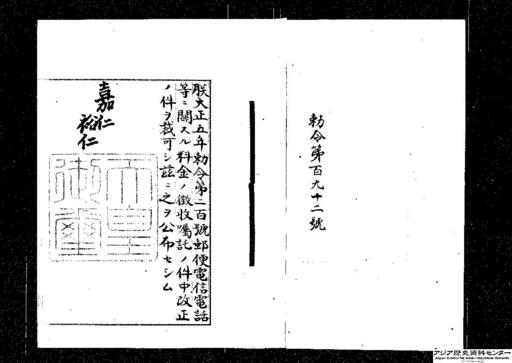 勅令第百九十二號
朕大正五年勅令第二百號郵便電信電話
等ニ關スル料金ノ徴收囑託ノ件中改正
ノ件ヲ裁可シ玆ニ之ヲ公布セシム
嘉仁
裕仁
天皇御璽
アジア歴史資料センター
Japan Center for Asian Historical Records